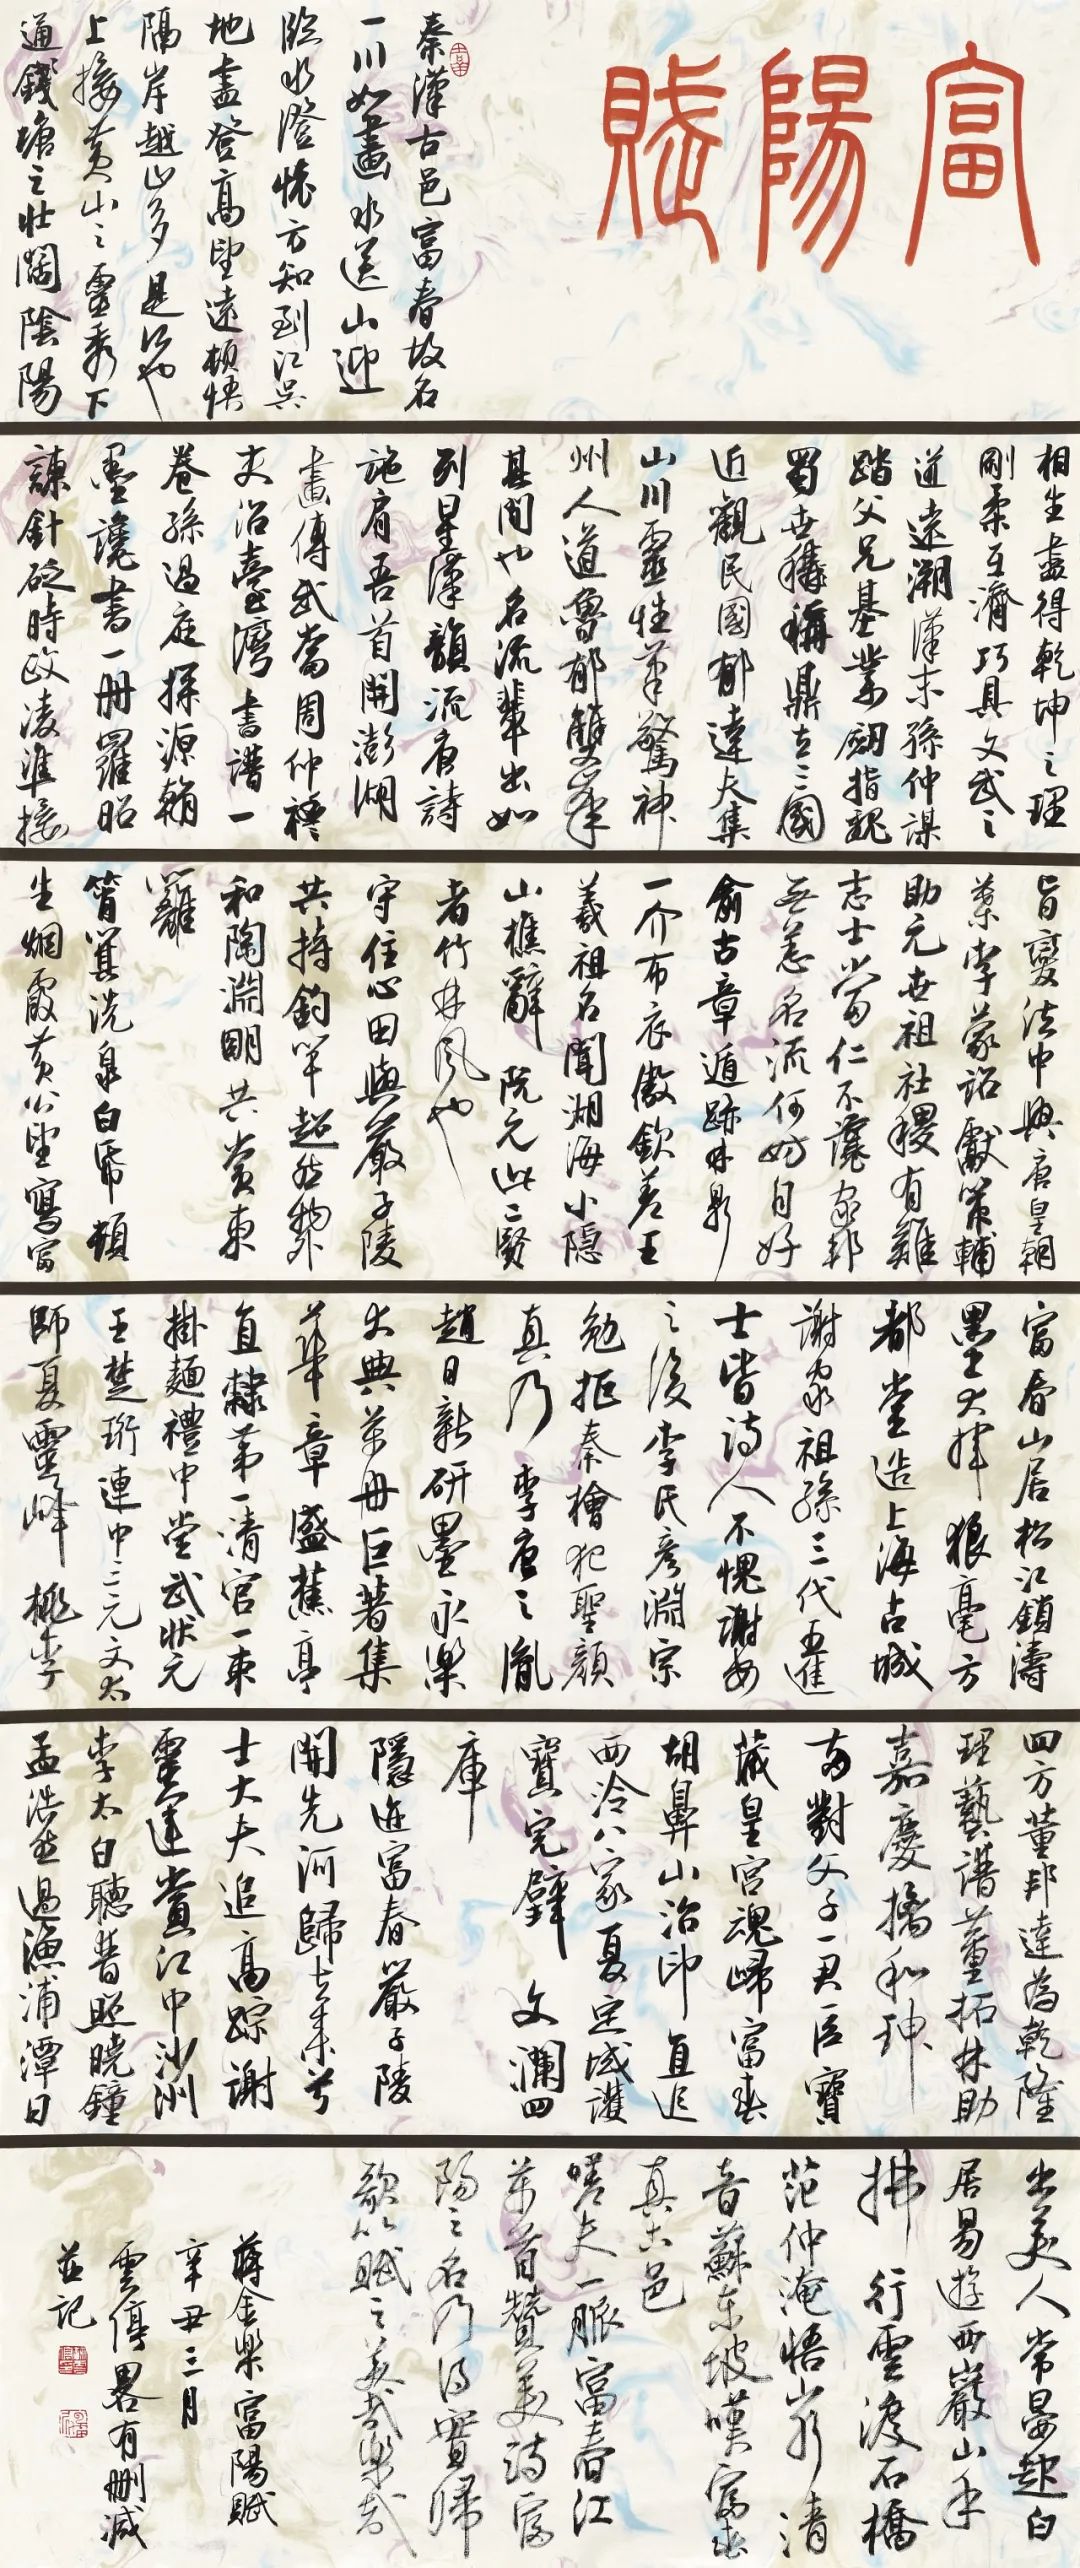 富陽賦
秦漢古邑富春故名
一川如畫水送山迎
臨水澄懷方知到江吳
地盡登高望遠頓悟
隔岸越山多是江也
上接黃山之靈秀下
通錢塘之壯闊陰陽
相生盡得乾坤之理
剛柔互濟巧具文武之
道遠溯漢末孫仲謀
踏父兄基業劍指魏
蜀世稱鼎立三國
近觀民國郁達夫集
山川靈性筆驚神
州人道魯郁雙峯
其間也名流輩出如
列星漢韻流唐詩
施肩吾首開澎湖
畫傳武當周仲
夫治臺灣書譜一
卷孫過庭探源翰
墨讒書一冊羅昭
諫針砭時政凌準接
旨變法中興唐皇朝
葉李蒙詔獻策輔
助元世祖社稷有難
志士當仁不讓家邦
無恙名流何妨自好
俞古章遁跡
一介布衣傲欽差王
羲祖名聞湖海小隱
山樵辭阮元此二賢
者竹林風也
守住心田與嚴子陵
共持釣竿超然物外
和陶淵明共賞東
籬
筲箕洗泉白紙頓
生烟霞黃公望寫富
富春山居松江鎖濤
墨大揮狼毫方
都堂造上海古城
謝家祖孫三代五進
士皆詩人不愧謝安
之後李氏彥淵宗
勉拒秦檜犯聖顏
真乃李唐之胤
趙日新研墨永樂
大典萬冊巨著集
華章盛蕉亭
直隸第一清官一束
掛麵禮中堂武狀元
王楚珩連中三元文太
師夏靈峰桃李
四方董邦達為乾隆
理藝譜董拓林助
嘉慶擒和珅
對父子君臣寶
藏皇宮魂歸富春
胡鼻山治印直追
西泠八家夏定域護
寶完璧文瀾四
庫
隱逸富春嚴子陵
開先河歸去來兮
士大夫追高踪謝
靈運賞江中沙洲
李太白聽普照曉鐘
孟浩然過漁浦潭日
出美人常晏起白
居易遊西巖山手
拂行雲渡石橋
范仲淹悟山水清
音蘇東坡嘆富春
真古邑
嗟夫一脈富春江
萬首贊美詩富
陽之名乃得實歸
歌以賦之美哉樂哉
蔣金樂富陽賦
辛丑三月
雲傳略有刪減
並記